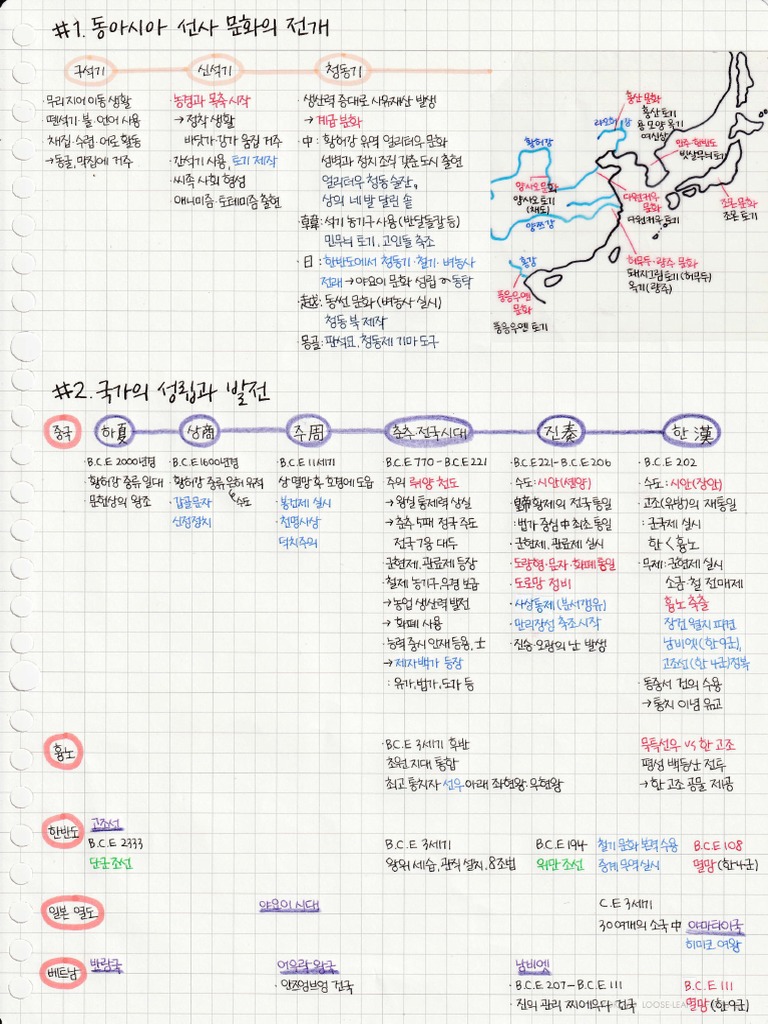 #1. 동아시아 선사 문화의 전개
구석기
·무리지어 이동 생활
·뗀석기·불·언어 사용
·채집·수렵·어로 활동
→동굴, 막집에 거주
신석기
농경과 목축 시작
→ 정착 생활
바닷가·강가 움집 거주
·간석기 사용, 토기 제작
·씨족 사회 형성
·애니미즘·토테미즘 출현
청동기
·생산력 증대로 사유재산 발생
→ 계급 분화
·中: 황허강 유역 얼리터우 문화
성벽과 정치 조직 갖춘 도시 출현
얼리터우 청동 술잔,
상의 네 발 달린 솥
·韓: 석기 농기구 사용 (반달돌칼 등)
민무늬 토기, 고인돌 축조
·日: 한반도에서 청동기·철기·벼농사
전래 → 야요이 문화 성립 ex)동탁
·越: 동썬 문화 (벼농사 실시)
청동 북 제작
·몽골: 판석묘, 청동제 기마 도구
훙산 문화
훙산 토기
용 모양 옥기
여신상
랴오허강
황허강
만주·한반도
빗살무늬 토기
양사오 문화
양사오 토기
(채도)
다원커우
문화
다원커우 토기
조몬 문화
조몬 토기
양쯔강
허무두·량주 문화
돼지그림 토기 (허무두)
옥기 (량주)
홍강
풍응우옌
문화
풍응우옌 토기
#2. 국가의 성립과 발전
중국
하夏
·B.C.E 2000년경
·황허강 중류 일대
·문헌상의 왕조
상商
·B.C.E 1600년경
·황허강 중류 은허 유적
수도
·갑골문자
·신정정치
주周
·B.C.E 11세기
·상 멸망 후 호경에 도읍
·봉건제 실시
·천명사상
·덕치주의
춘추·전국시대
·B.C.E 770-B.C.E 221
·주의 뤄양 천도
→ 왕실 통제력 상실
→ 춘추 5패 정국 주도
전국 7웅 대두
·군현제, 관료제 등장
·철제 농기구, 우경 보급
→ 농업 생산력 발전
→ 화폐 사용
·능력 중시 인재 등용, 士
→ 제자백가 등장
: 유가, 법가, 도가 등
진秦
·B.C.E 221-B.C.E 206
·수도: 시안(셴양)
황제의 전국 통일
: 법가 중심 中 최초 통일
·군현제, 관료제 실시
·도량형·문자·화폐 통일
·도로망 정비
·사상통제 (분서갱유)
·만리장성 축조 시작
·진승·오광의 난 발생
한漢
·B.C.E 202
·수도: 시안(장안)
·고조(유방)의 재통일
: 군국제 실시
한 < 흉노
·무제: 군현제 실시
소금·철 전매제
흉노 축출
장건 월지 파견
남비엣(한 9군),
고조선(한 4군) 정복
·동중서 건의 수용
→ 통치 이념 유교
흉노
·B.C.E 3세기 후반
초원 지대 통합
·최고 통치자 선우 아래 좌현왕·우현왕
묵특선우 vs 한 고조
평성 백등산 전투
→ 한 고조 공물 제공
한반도
고조선
B.C.E 2333
단군 조선
B.C.E 3세기
왕위 세습, 관직 설치, 8조법
B.C.E 194
위만 조선
철기 문화 본격 수용
중계 무역 실시
B.C.E 108
멸망 (한 4군)
일본 열도
야요이 시대
C.E 3세기
30여개의 소국 中 야마타이국
히미코 여왕
베트남
반랑국
어우락 왕국
·안즈엉브엉 건국
남비엣
·B.C.E 207-B.C.E 111
·진의 관리 찌에우다 건국
B.C.E 111
멸망 (한 9군)
LOOSE-LEA